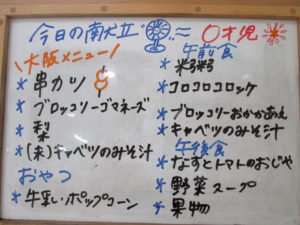 今日の献立
＼大阪メニュー／
* 串カツ
* ブロッコリーゴマネーズ
* 梨
* (未)キャベツのみそ汁
おやつ
* 牛乳・ポップコーン
0才児
午前食
* 粥
* コロコロコロッケ
* ブロッコリーおかかあえ
* キャベツのみそ汁
午後食
* なすとトマトのおじや
* 野菜スープ
* 果物